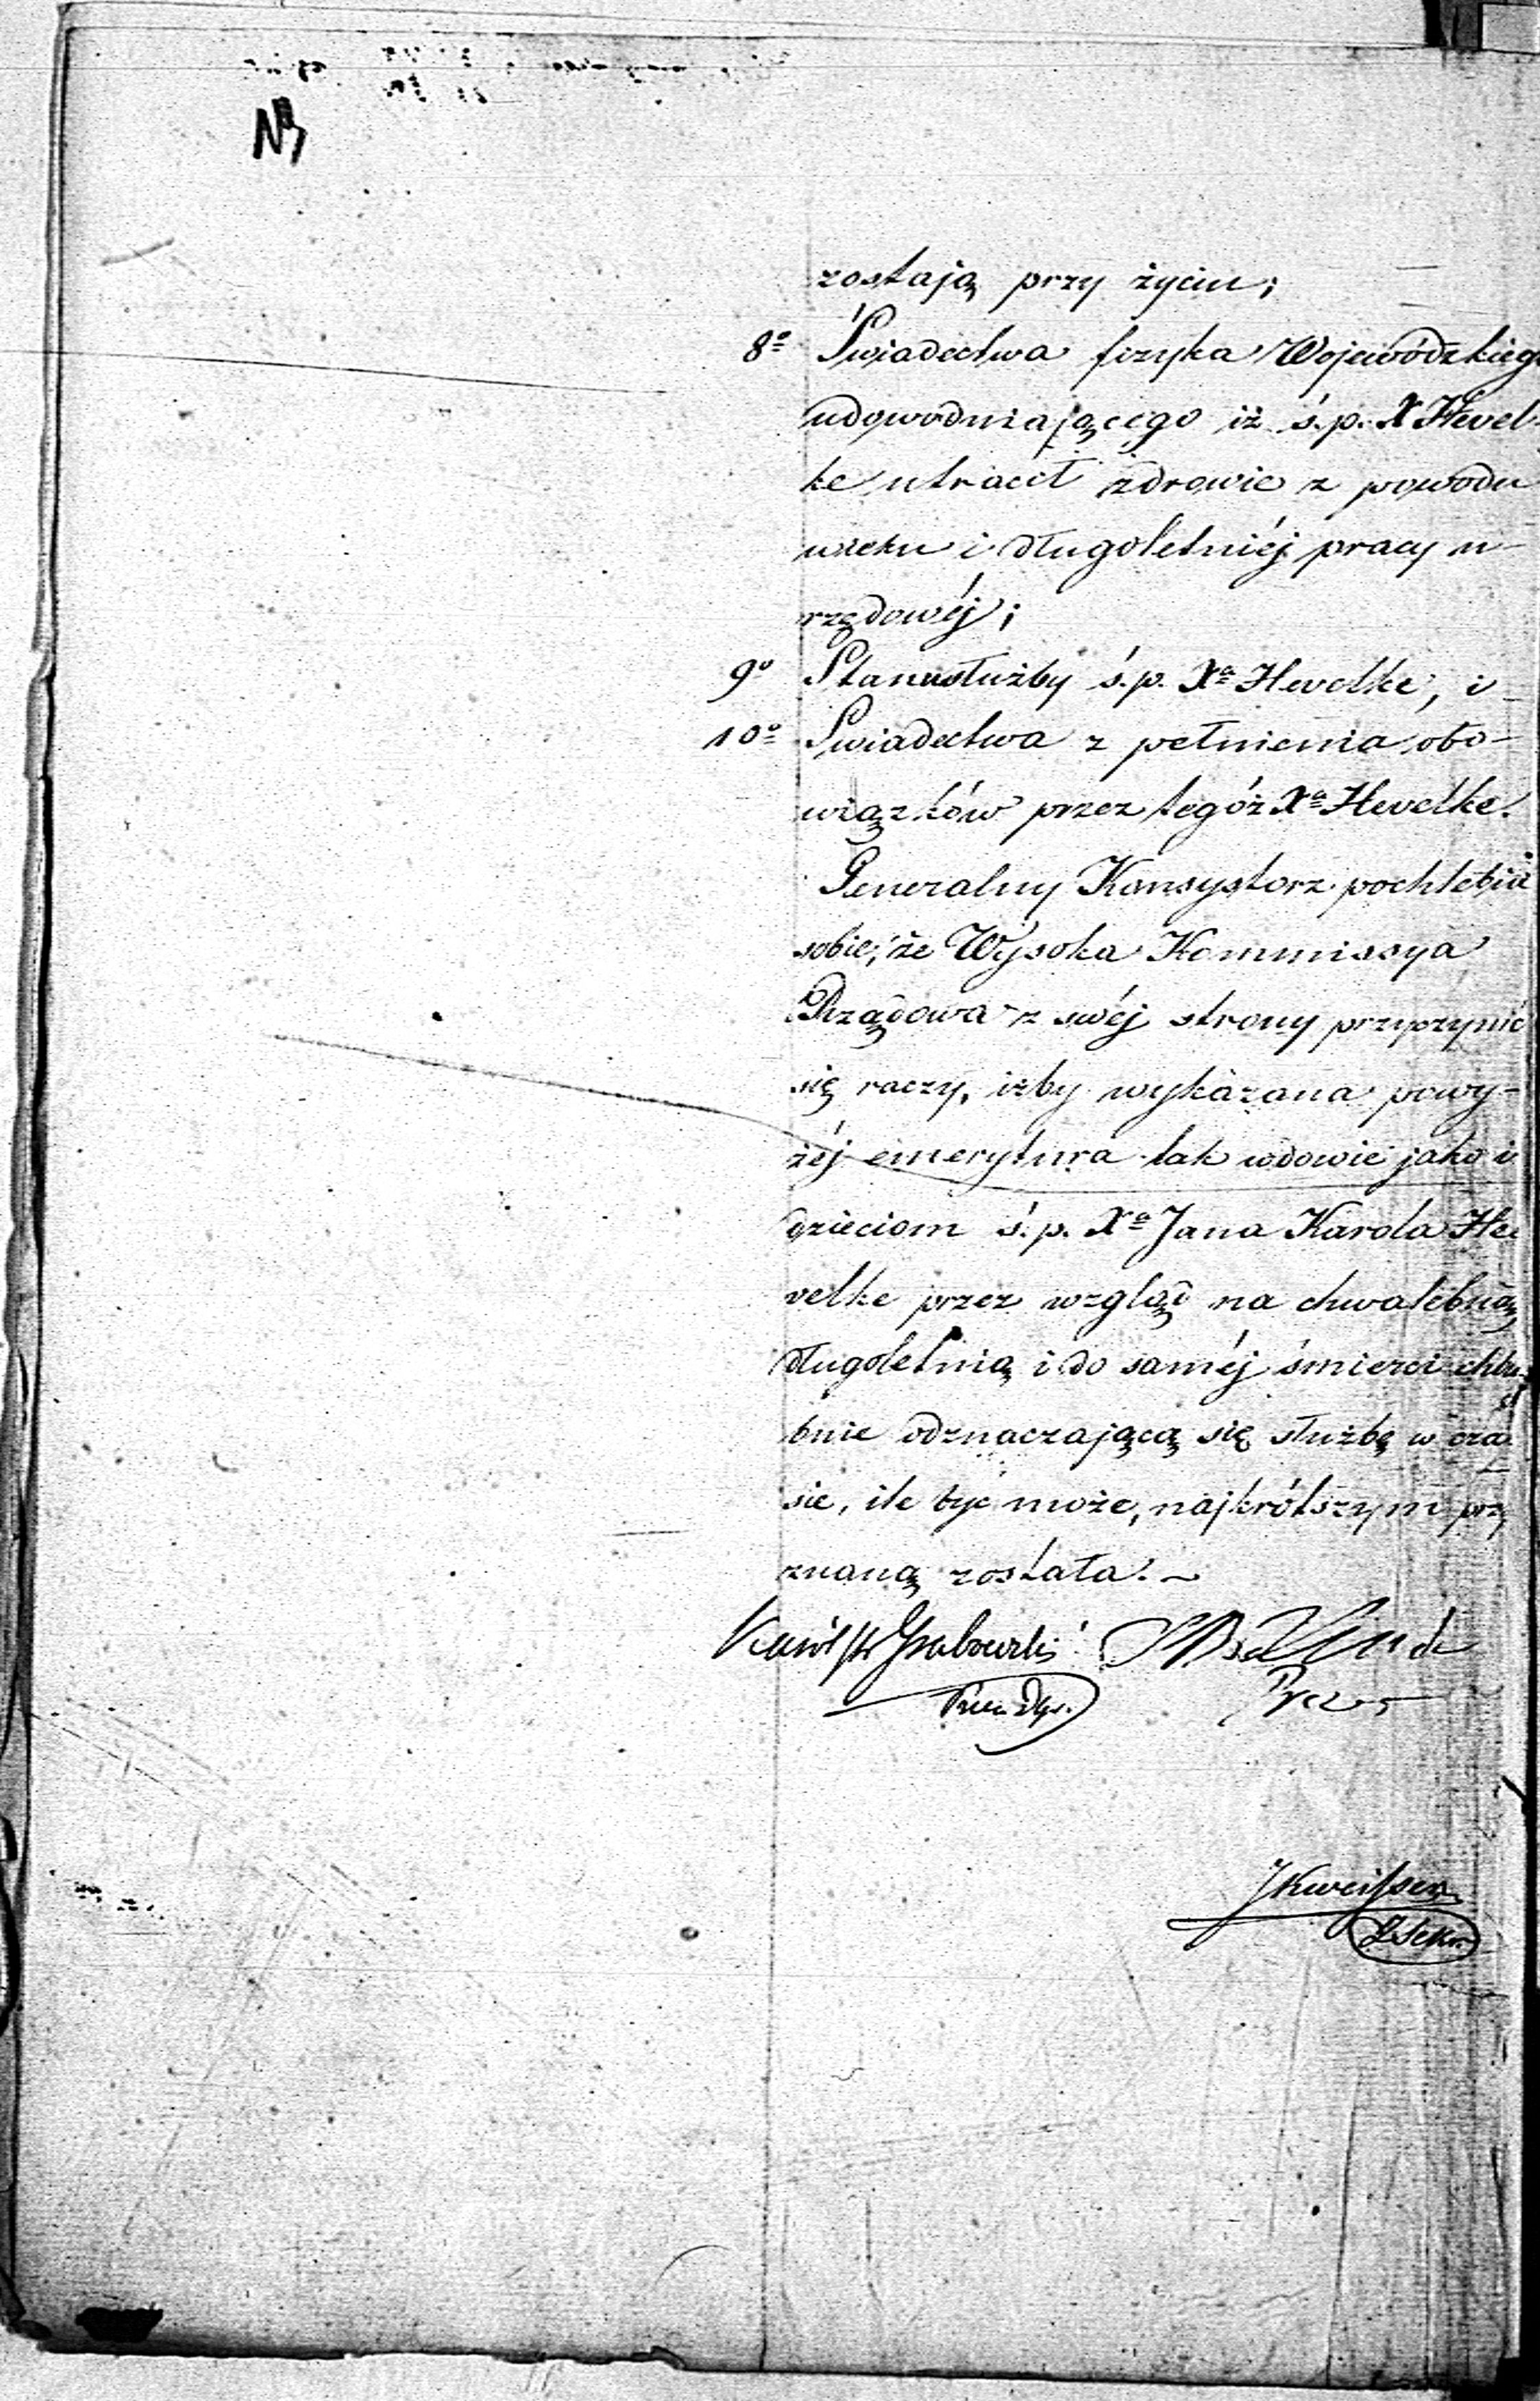 zostają przy życiu;
8º Świadectwa fizyka Wojewódzkiego
udowodniającego iż ś.p. X Hevel-
ke utracił zdrowie z powodu
wieku i długoletniéj pracy u-
rzędowéj;
9º Stanu służby ś.p. Xª Hevelke, i
10º Świadectwa z pełnienia obo-
wiązków przez tegóż Xª Hevelke.
Generalny Konsystorz pochlebia
sobie, że Wysoka Kommissya
Rządowa z swéj strony przyczynić
się raczy, iżby wykazana powy-
żéj emerytura tak wdowie jako i
dzieciom ś.p. Xª Jana Karola He-
velke przez wzgląd na chwalebną
długoletnią i do saméj śmierci chlu-
bnie odznaczającą się służbę w cza-
sie, ile być może, najkrótszym przy
znaną została.
Karól Grabowski
Prezes